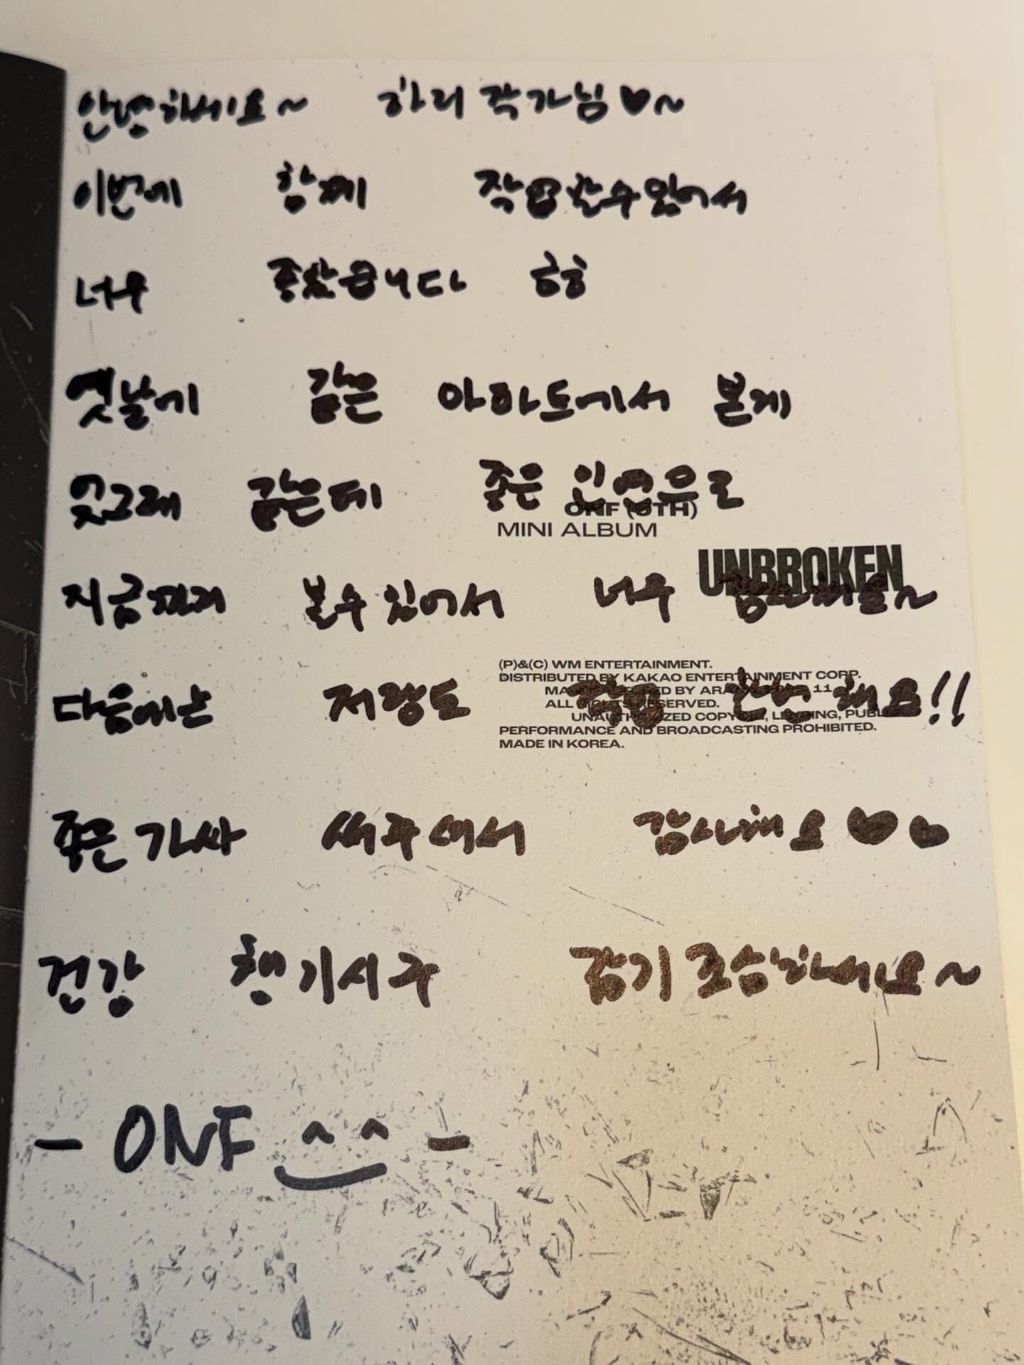 안녕하세요~ 하리 작가님♥~
이번에 함께 작업할수있어서
너무 좋았습니다 ㅎㅎ
옛날에 같은 아파트에서 본게
엊그제 같은데 좋은 인연으로
ONF (9TH)
MINI ALBUM
UNBROKEN
지금까지 볼수있어서 너무 감사해요~
(P)&(C) WM ENTERTAINMENT.
DISTRIBUTED BY KAKAO ENTERTAINMENT CORP.
BY
ALL RIGHTS RESERVED.
UNAUTHORIZED COPYING, LENDING, PUBLIC
PERFORMANCE AND BROADCASTING PROHIBITED.
MADE IN KOREA.
다음에는 저랑도 작업 한번 해요!!
좋은 가사 써주셔서 감사해요 ♥♥
건강 챙기시구 감기 조심하세요~
- ONF ^^ -